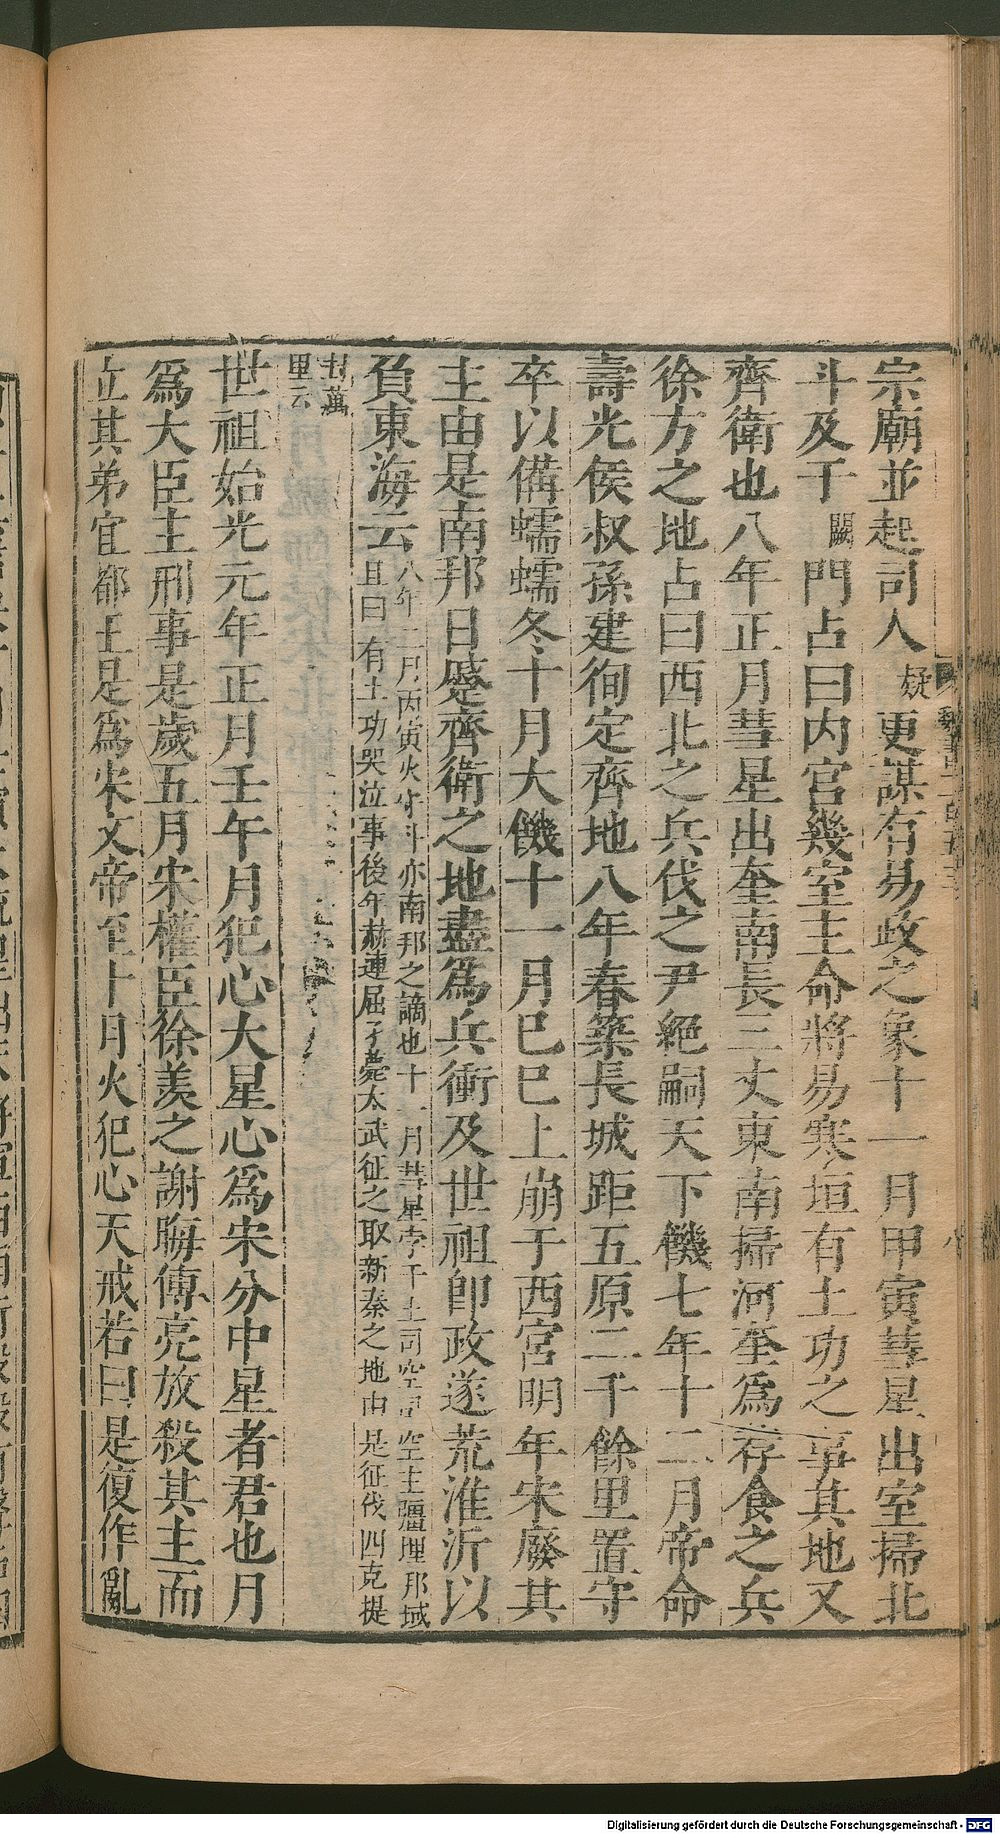 宗廟並起司人疑更謀有易政之象十一月甲寅彗星出室掃北
斗及于闕門占曰内宮幾室主命將易寒垣有土功之事其地又
齊衛也八年正月彗星出奎南長三丈東南掃河奎爲荐食之兵
徐方之地占曰西北之兵伐之尹絕嗣天下饑七年十二月帝命
壽光侯叔孫建徇定齊地八年春築長城距五原二千餘里置守
卒以備蠕蠕冬十月大饑十一月巳巳上崩于西宮明年宋廢其
主由是南邦日蹙齊衛之地盡爲兵衝及世祖卽政遂荒淮沂以
負東海云八年二月丙寅火守斗亦南邦之謫也十一月彗星孛于土司空司空主疆理邦域
且曰有土功哭泣事後年赫連屈孑薨太武征之取新秦之地由是征伐四克提
封萬
里云
世祖始光元年正月壬午月犯心大星心爲宋分中星者君也月
爲大臣主刑事是歲五月宋權臣徐羨之謝晦傳亮放殺其主而
立其弟宜都王是爲宋文帝至十月火犯心天戒若曰是復作亂
Digitalisierung gefördert durch die Deutsche Forschungsgemeinschaft - DFG